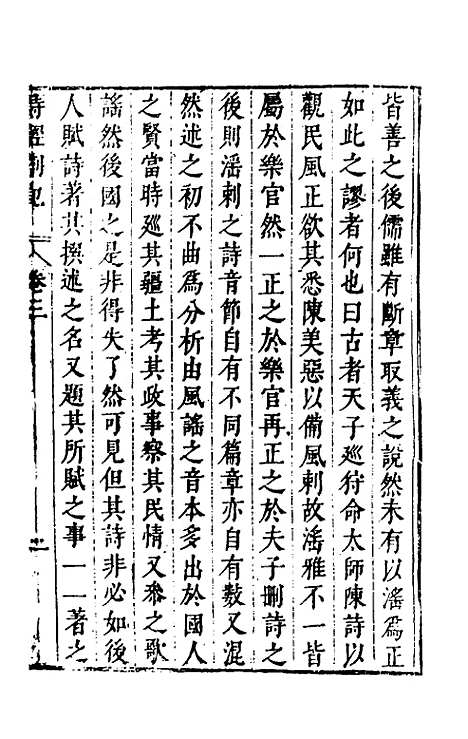 皆善之後儒雖有斷章取義之說然未有以滛爲正
如此之謬者何也曰古者天子廵狩命太師陳詩以
觀民風正欲其悉陳美惡以備風刺故滛雅不一皆
屬於樂官然一正之於樂官再正之於夫子刪詩之
後則滛刺之詩音節自有不同篇章亦自有數又混
然述之初不曲爲分析由風謠之音本多出於國人
之賢當時廵其疆土考其政事察其民情又叅之歌
謠然後國之是非得失了然可見但其詩非必如後
人賦詩著其撰述之名又題其所賦之事一一著之
詩經劄記 卷三